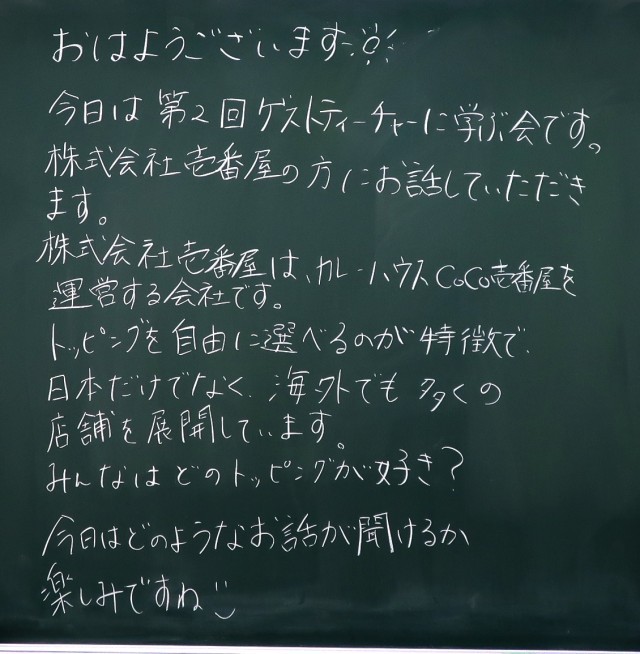 おはようございます
今日は第2回ゲストティーチャーに学ぶ会です。
株式会社壱番屋の方にお話していただき
ます。
株式会社壱番屋は、カレーハウスCoCo壱番屋を
運営する会社です。
トッピングを自由に選べるのが特徴で、
日本だけでなく、海外でも多くの
店舗を展開しています。
みんなはどのトッピングが好き？
今日はどのようなお話が聞けるか
楽しみですね